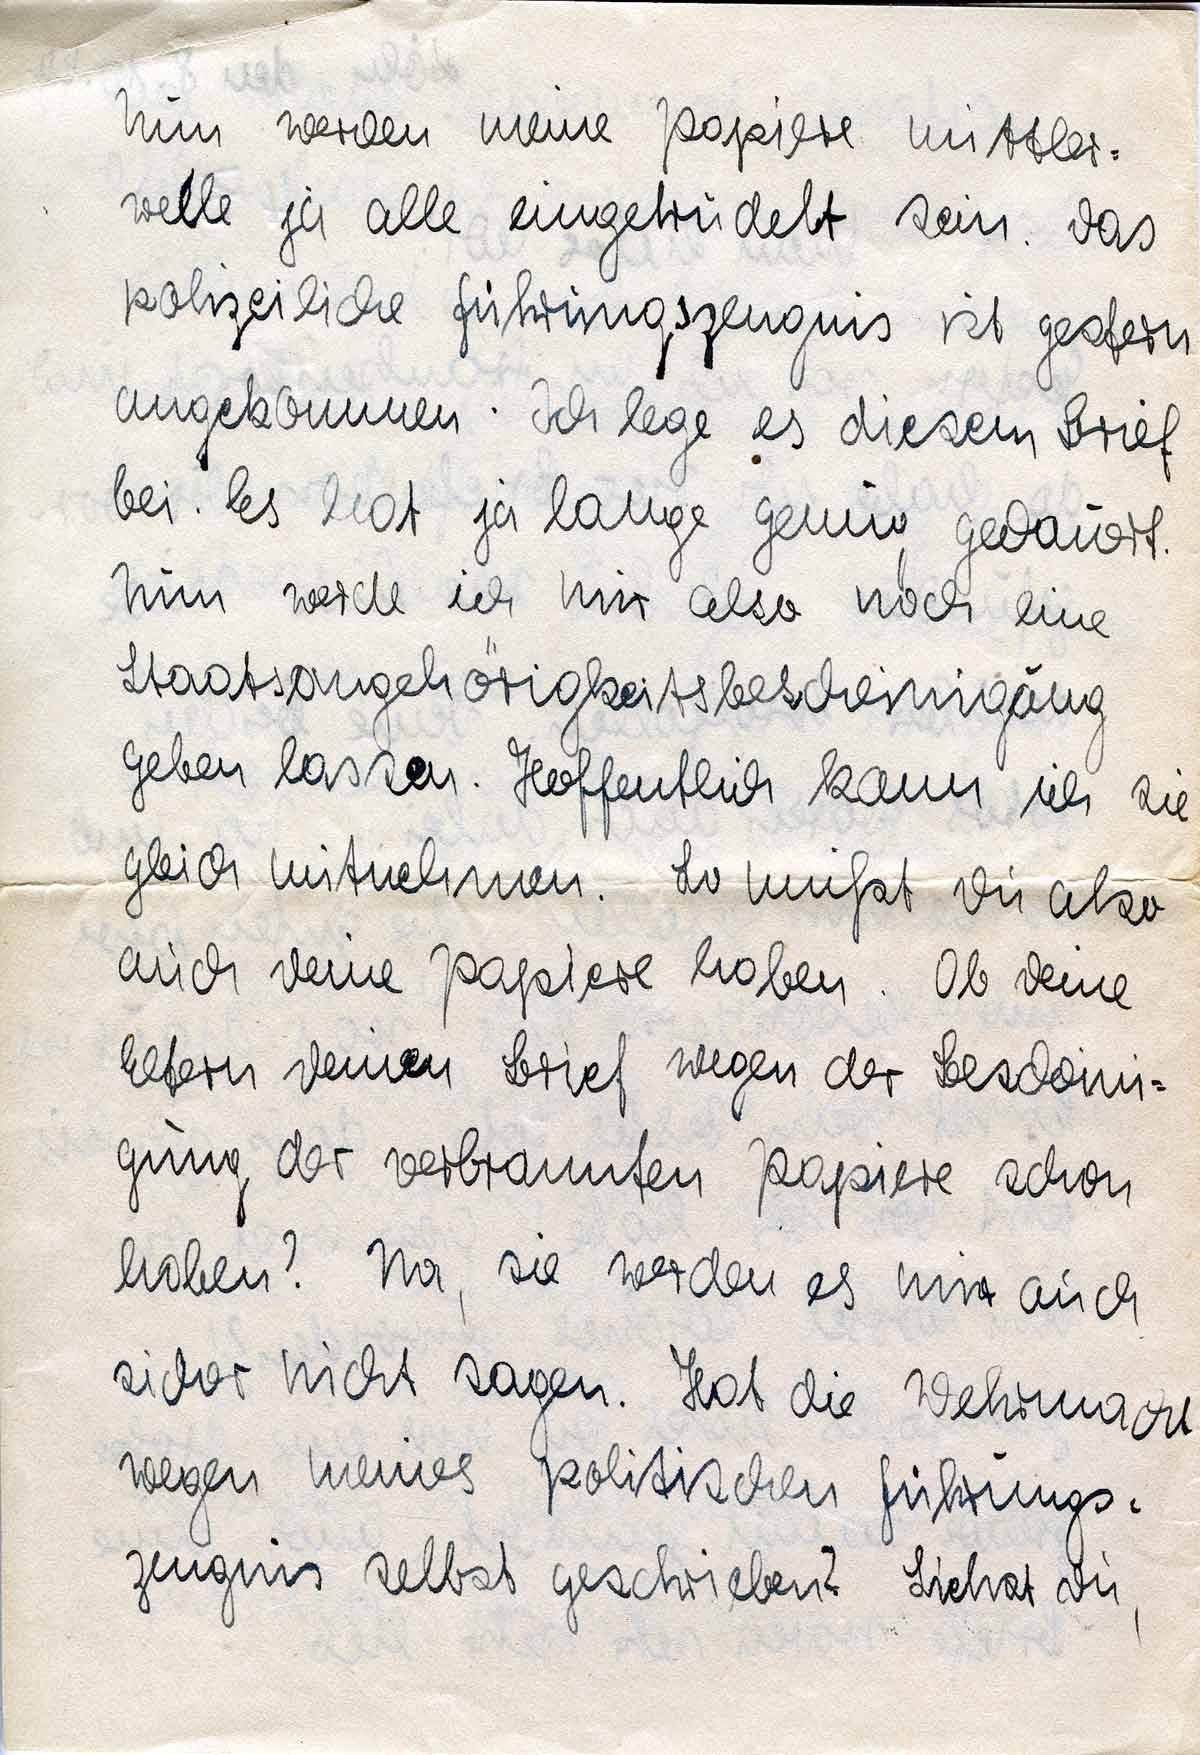 Nun werden meine Papiere mittler=
weile ja alle eingetrudelt sein. Das
polizeiliche Führungszeugnis ist gestern
angekommen. Ich lege es diesem Brief
bei. Es hat ja lange genug gedauert.
Nun werde ich mir also noch eine
Staatsangehörigkeitsbescheinigung
geben lassen. Hoffentlich kann ich sie
gleich mitnehmen. So mußt Du also
auch Deine Papiere haben. Ob Deine
Eltern Deinen Brief wegen der Beschäini=
gung der verbrannten Papiere schon
haben? Na, sie werden es mir auch
sicher nicht sagen. Hat die Wehrmacht
wegen meines politischen Führungs=
zeugnis selbst geschrieben? Siehst Du,